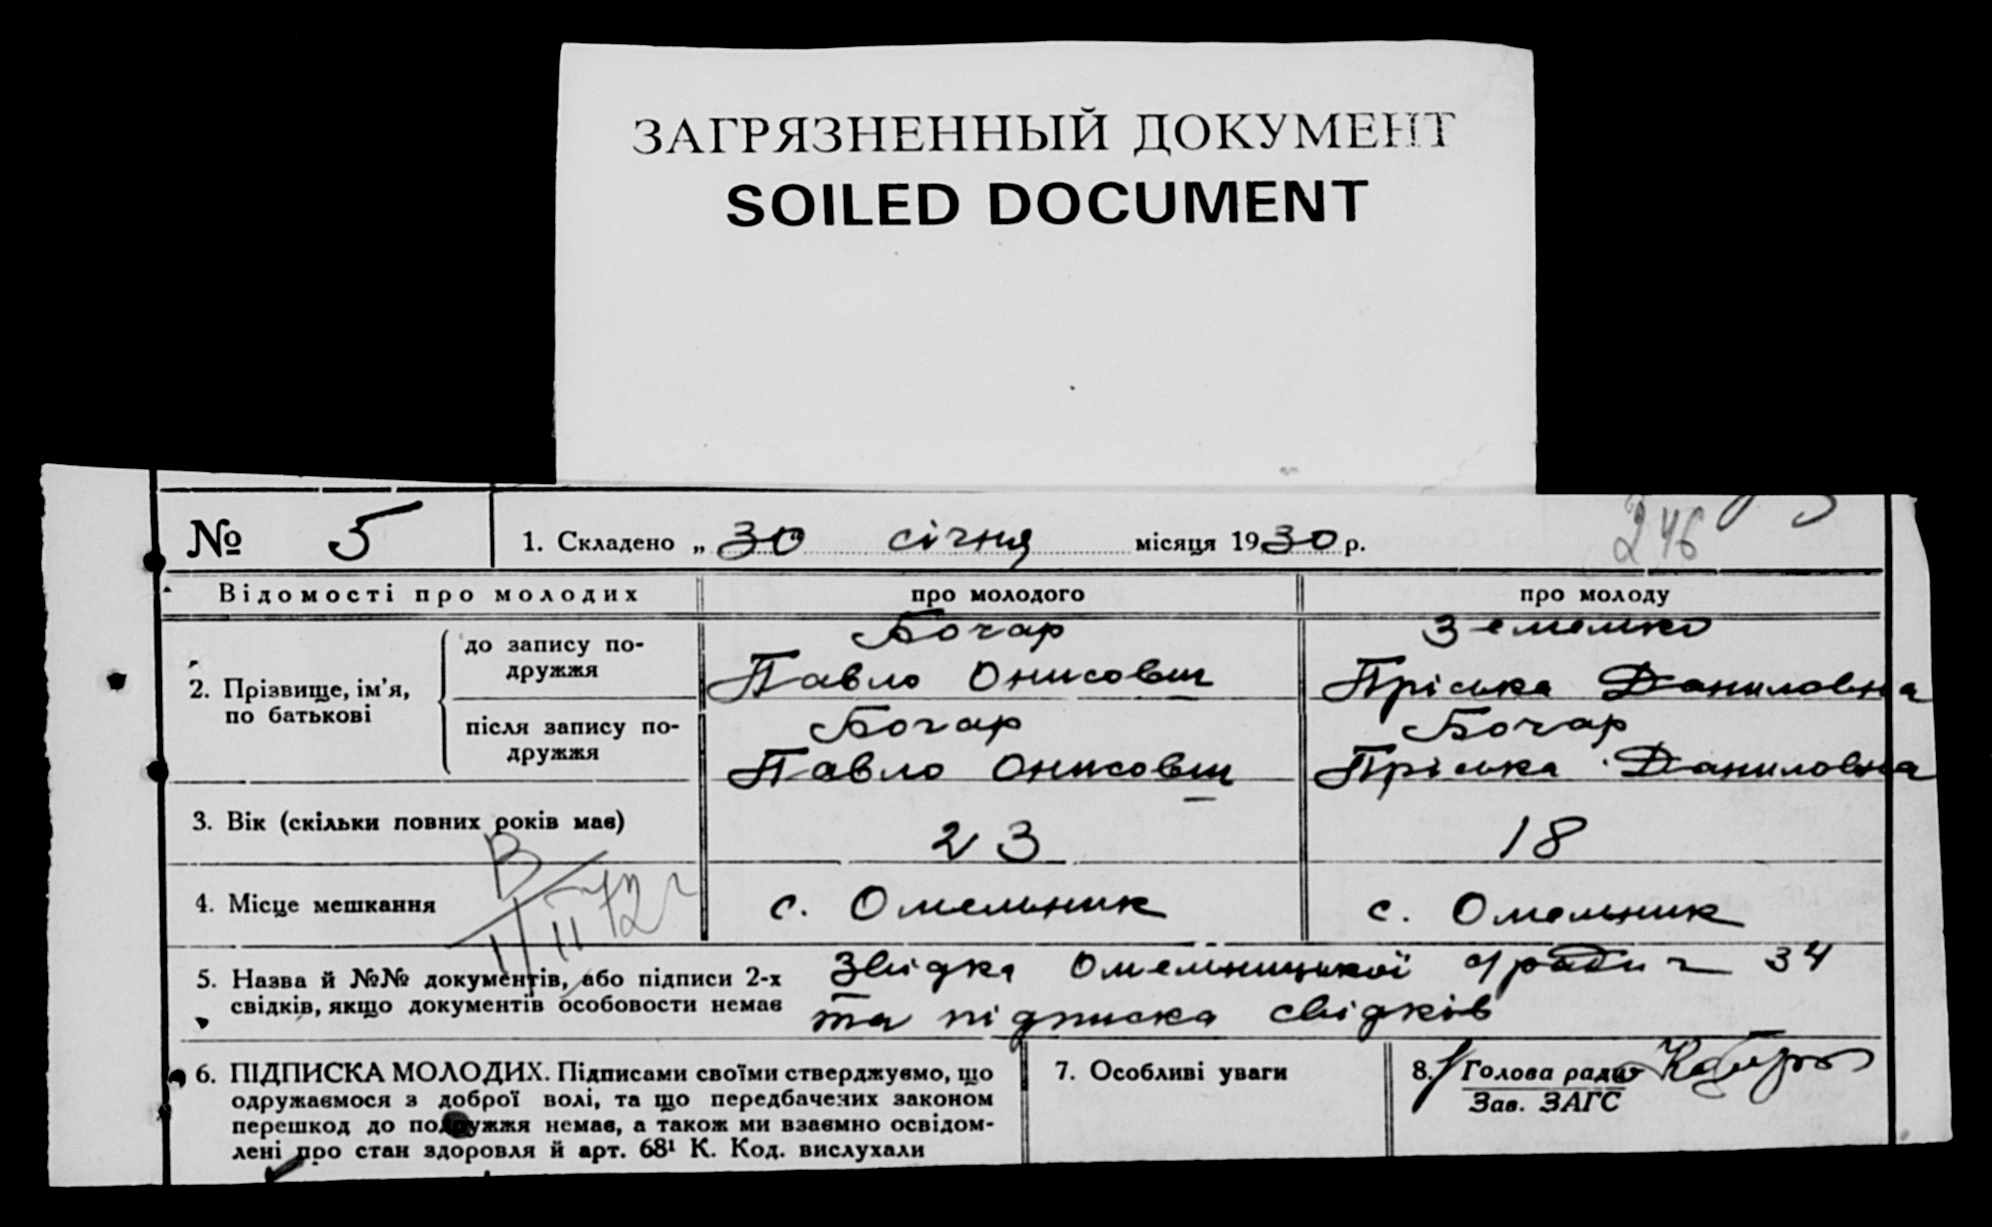 ЗАГРЯЗНЕННЫЙ ДОКУМЕНТ
SOILED DOCUMENT
№ 5
1. Складено „ 30 січня місяця 1930 р.
246
Відомості про молодих
про молодого
про молоду
2. Прізвище, ім'я, по батькові
до запису по-
дружжя
Бочар
Павло Онисович
Пріська Даниловна
після запису по-
дружжя
Бочар
Павло Онисович
Бочар
Пріська Даниловна
3. Вік (скільки повних років має)
23
18
4. Місце мешкання
с. Омельник
с. Омельник
5. Назва й №№ документів, або підписи 2-х
свідків, якщо документів особовости немає
Звідка Омельницької с/ради 34
та підписка свідків
6. ПІДПИСКА МОЛОДИХ. Підписами своїми стверджуємо, що
одружаємося з доброї волі, та що передбачених законом
перешкод до подружжя немає, а також ми взаємно освідом-
лені про стан здоровля й арт. 68¹ К. Код. вислухали
7. Особливі уваги
8. Голова ради
Зав. ЗАГС